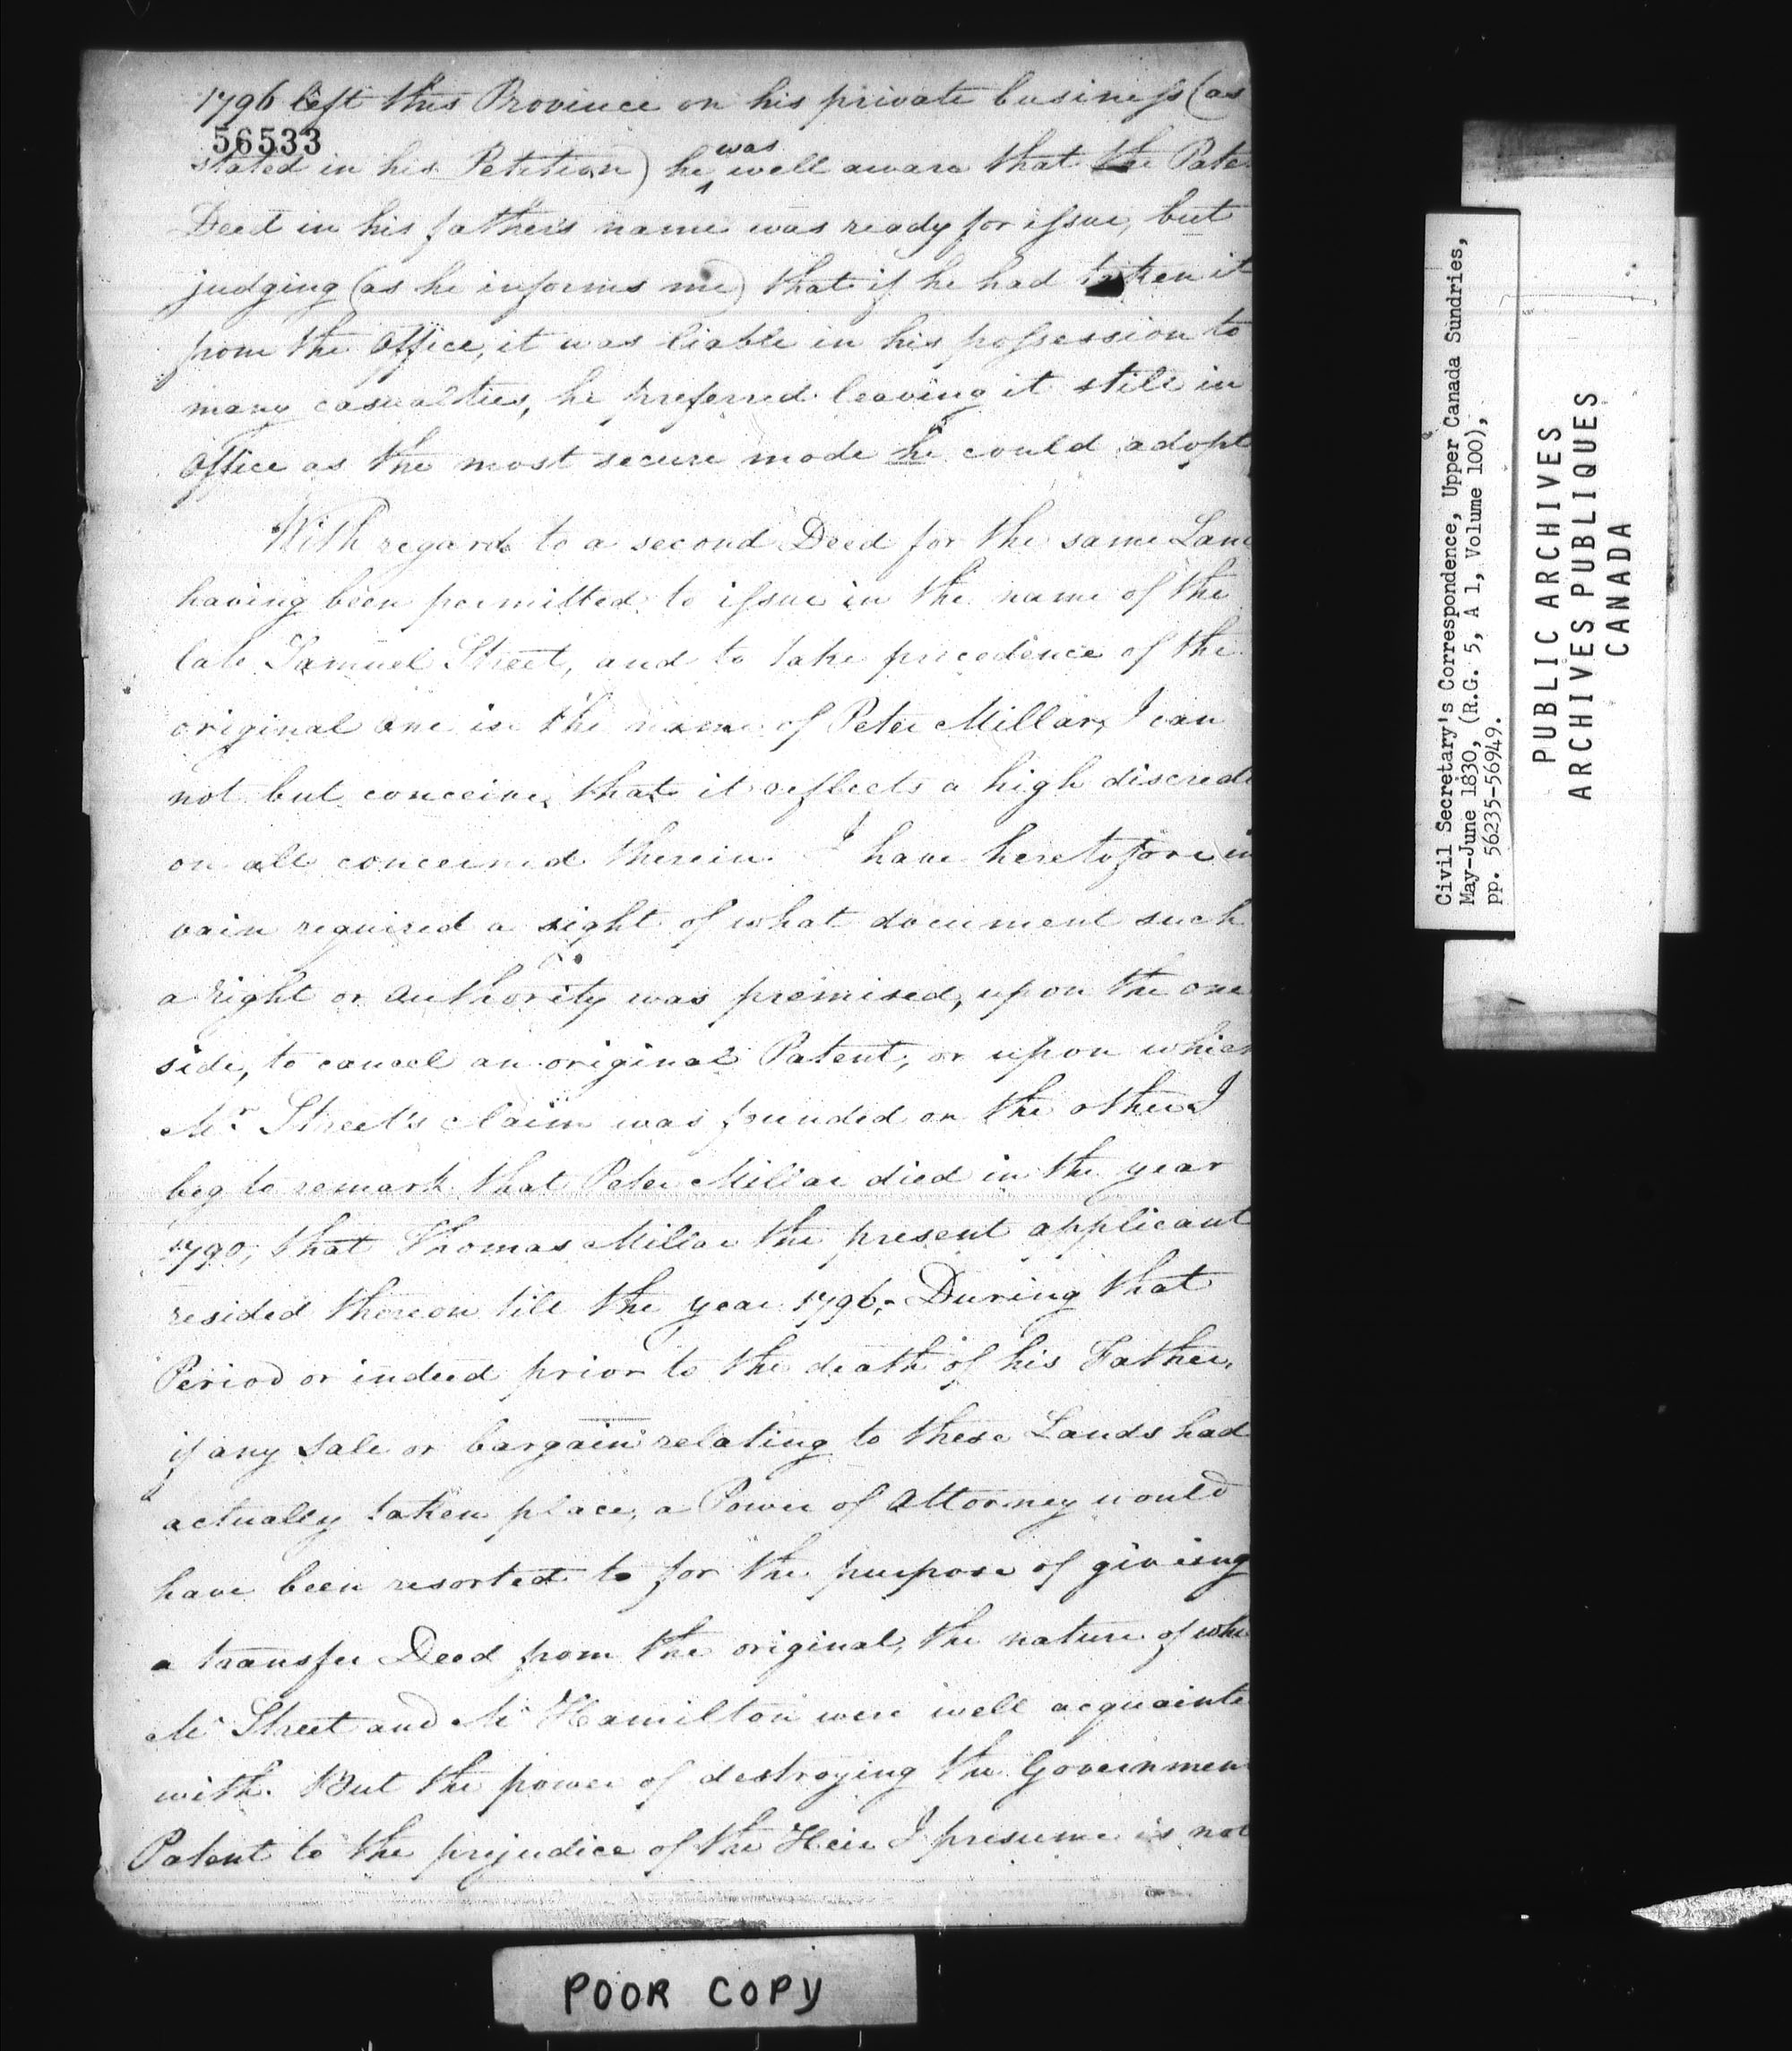 1796 left this Province on his private business (as
56533
stated in his Petition) he was well aware that the Pate
Deed in his father's name was ready for issue, but
judging (as he informs me) that if he had taken it
from the Office, it was liable in his possession to
many casualties, he preferred leaving it still in
Office as the most secure mode he could adopt
With regard to a second Deed for the same Lan
having been permitted to issue in the name of the
late Samuel Street, and to take precedence of the
original one in the name of Peter Millar, I can
not but conceive, that it reflects a high discredi
on all concerned therein. I have heretofore in
vain required a sight of what document such
a right or authority was premised, upon the one
side, to cancel an original Patent, or upon which
Mr Street's claim was founded on the other I
beg to remark that Peter Millar died in the year
1790, that Thomas Millar the present applicant
resided thereon till the year 1796,- During that
Period or indeed prior to the death of his Father,
if any sale or bargain relating to these Lands had
actually taken place, a Power of Attorney would
have been resorted to for the purpose of giveing
a transfer Deed from the original, the nature of whi
Mr Street and Mr Hamilton were well acquainte
with. But the power of destroying the Governmen
Patent to the prejudice of the Heir I presume is not
POOR COPY
Civil Secretary's Correspondence, Upper Canada Sundries,
May-June 1830, (R.G. 5, A 1, Volume 100),
pp. 56235-56949.
PUBLIC ARCHIVES
ARCHIVES PUBLIQUES
CANADA